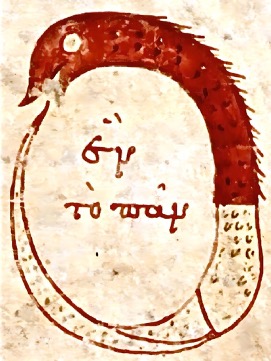 ἓν
τὸ πᾶν